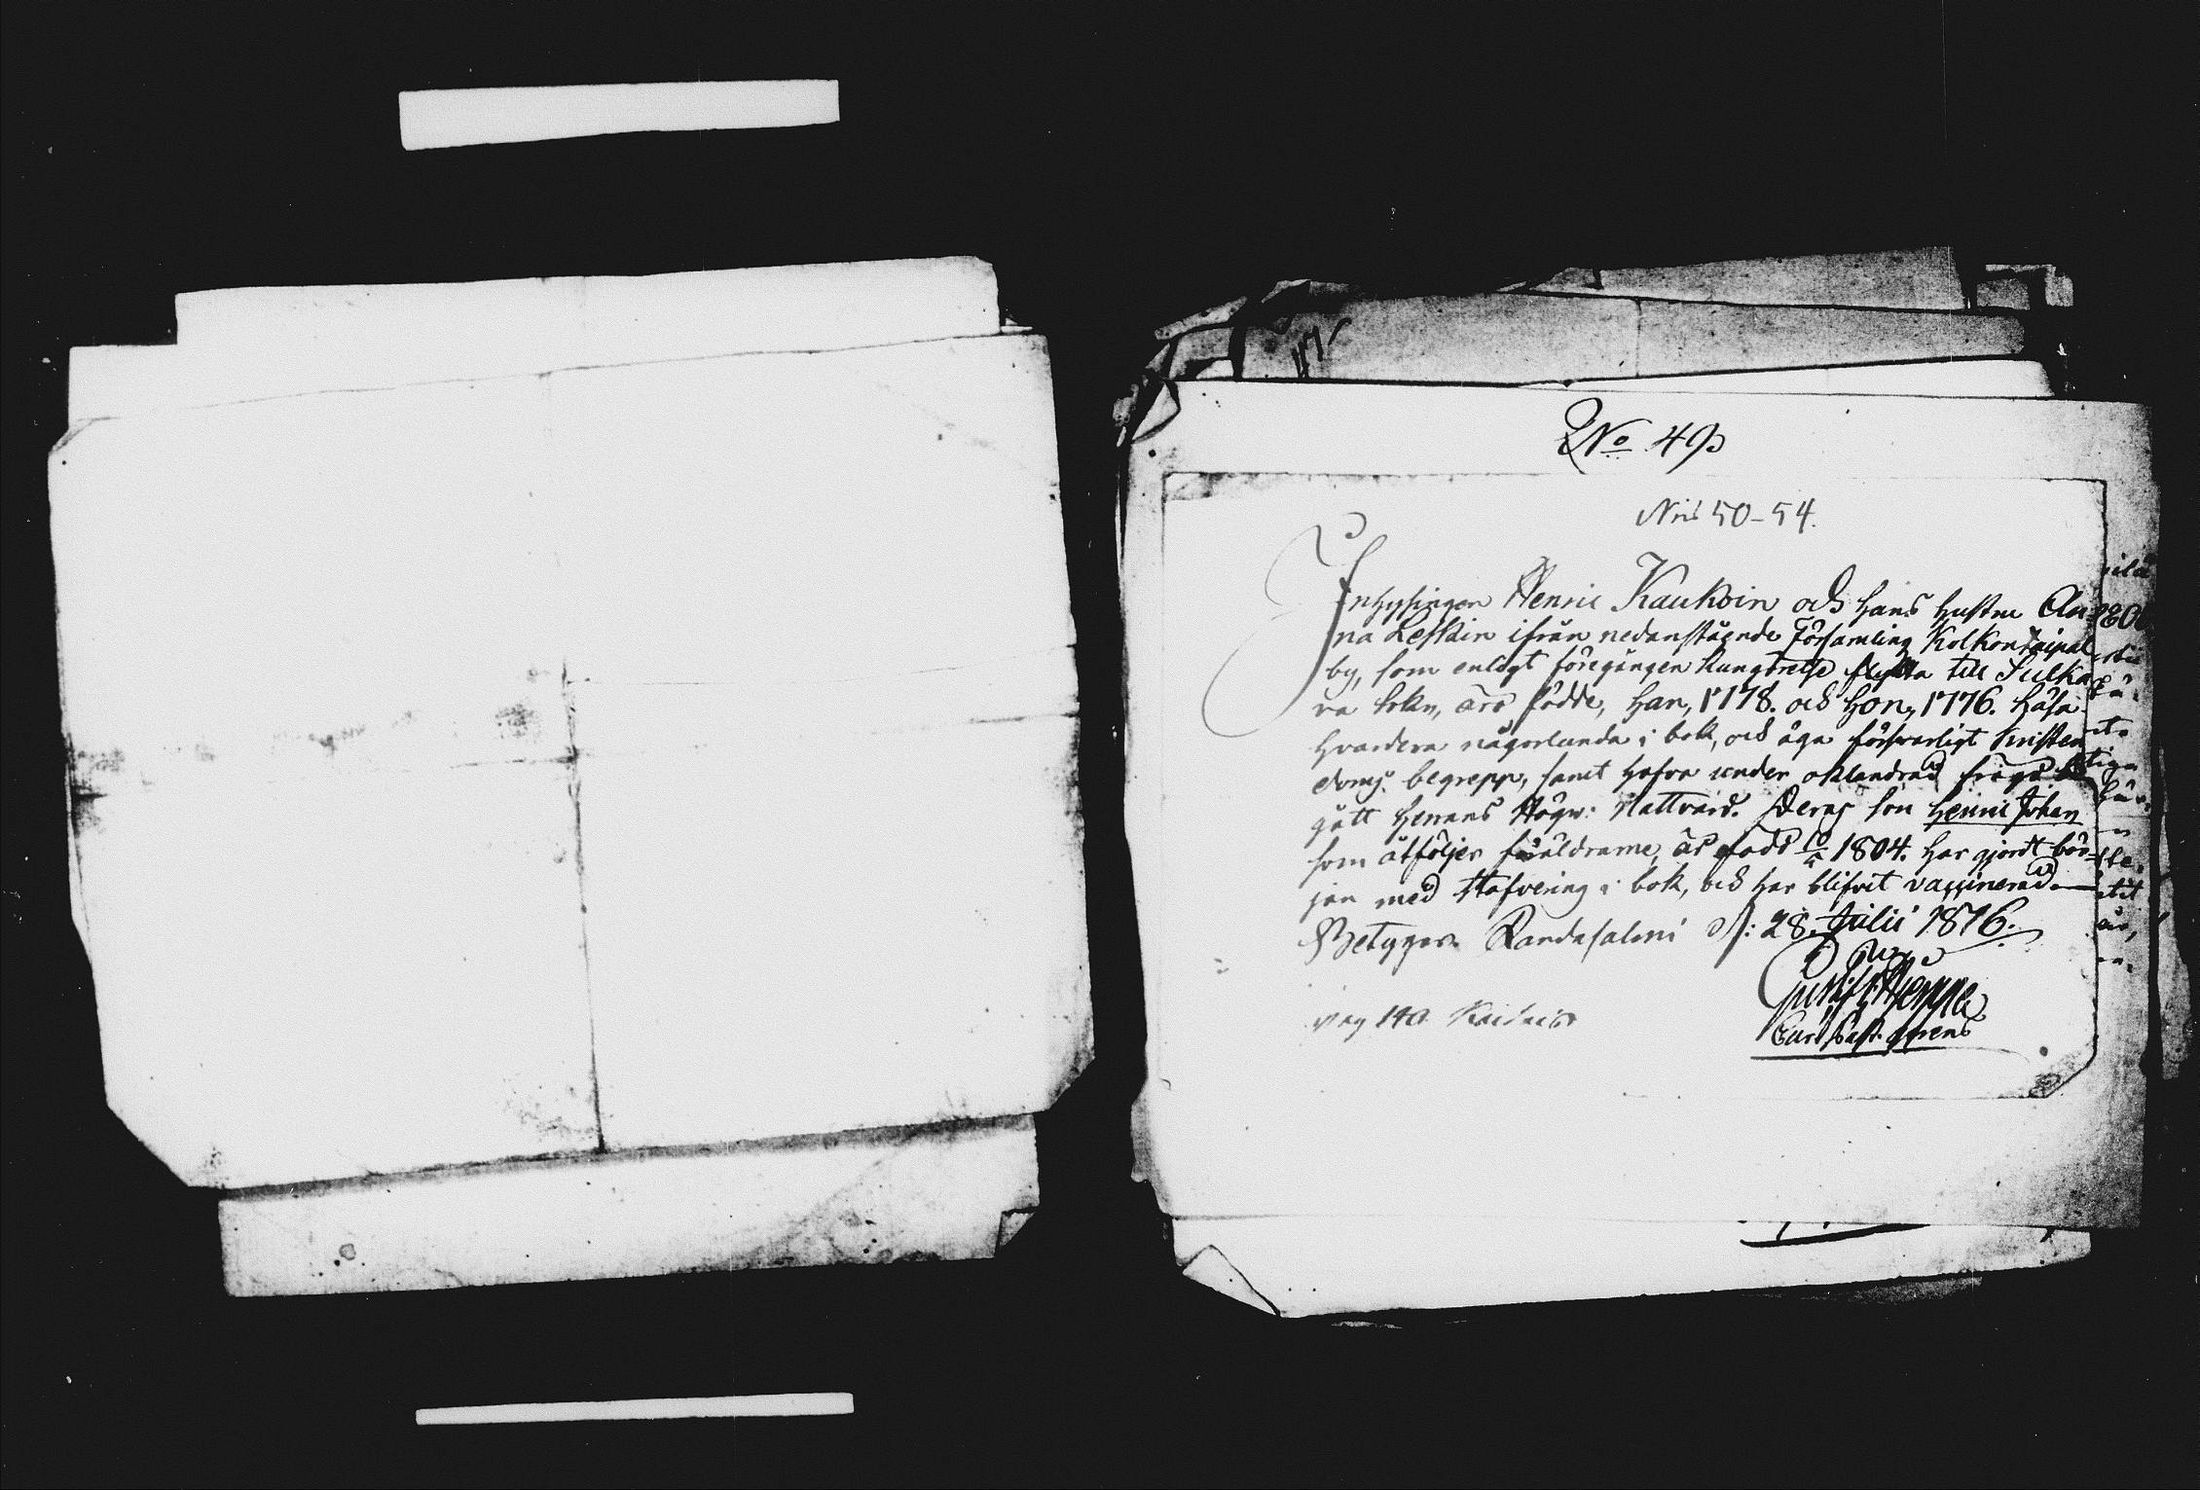 No 49
Nris 50-54.
Inhysingen Henric Kaukoin och hans hustru An-
na Leskin ifrån nedanstående Församling Kolkontaipal
by, som enligt föregången kungörelse flytta till Sulka
va sokn, äro födde, han, 1778. och hon, 1776. läsa
hvardera någorlunda i bok, och äga försvarligt kristen
doms begrepp, samt hafva under oklandrad frägd be
gått Herrans Högv: Nattvard. Deras son Henric Johan
som åtföljer föräldrarne, är född 10/5 1804. har gjordt bör-
jan med stafvning i bok, och har blifvit vaccinerad.
Betygar Randasalmi d: 28. Julii 1816.
Gustaf
Past.
pag 140.